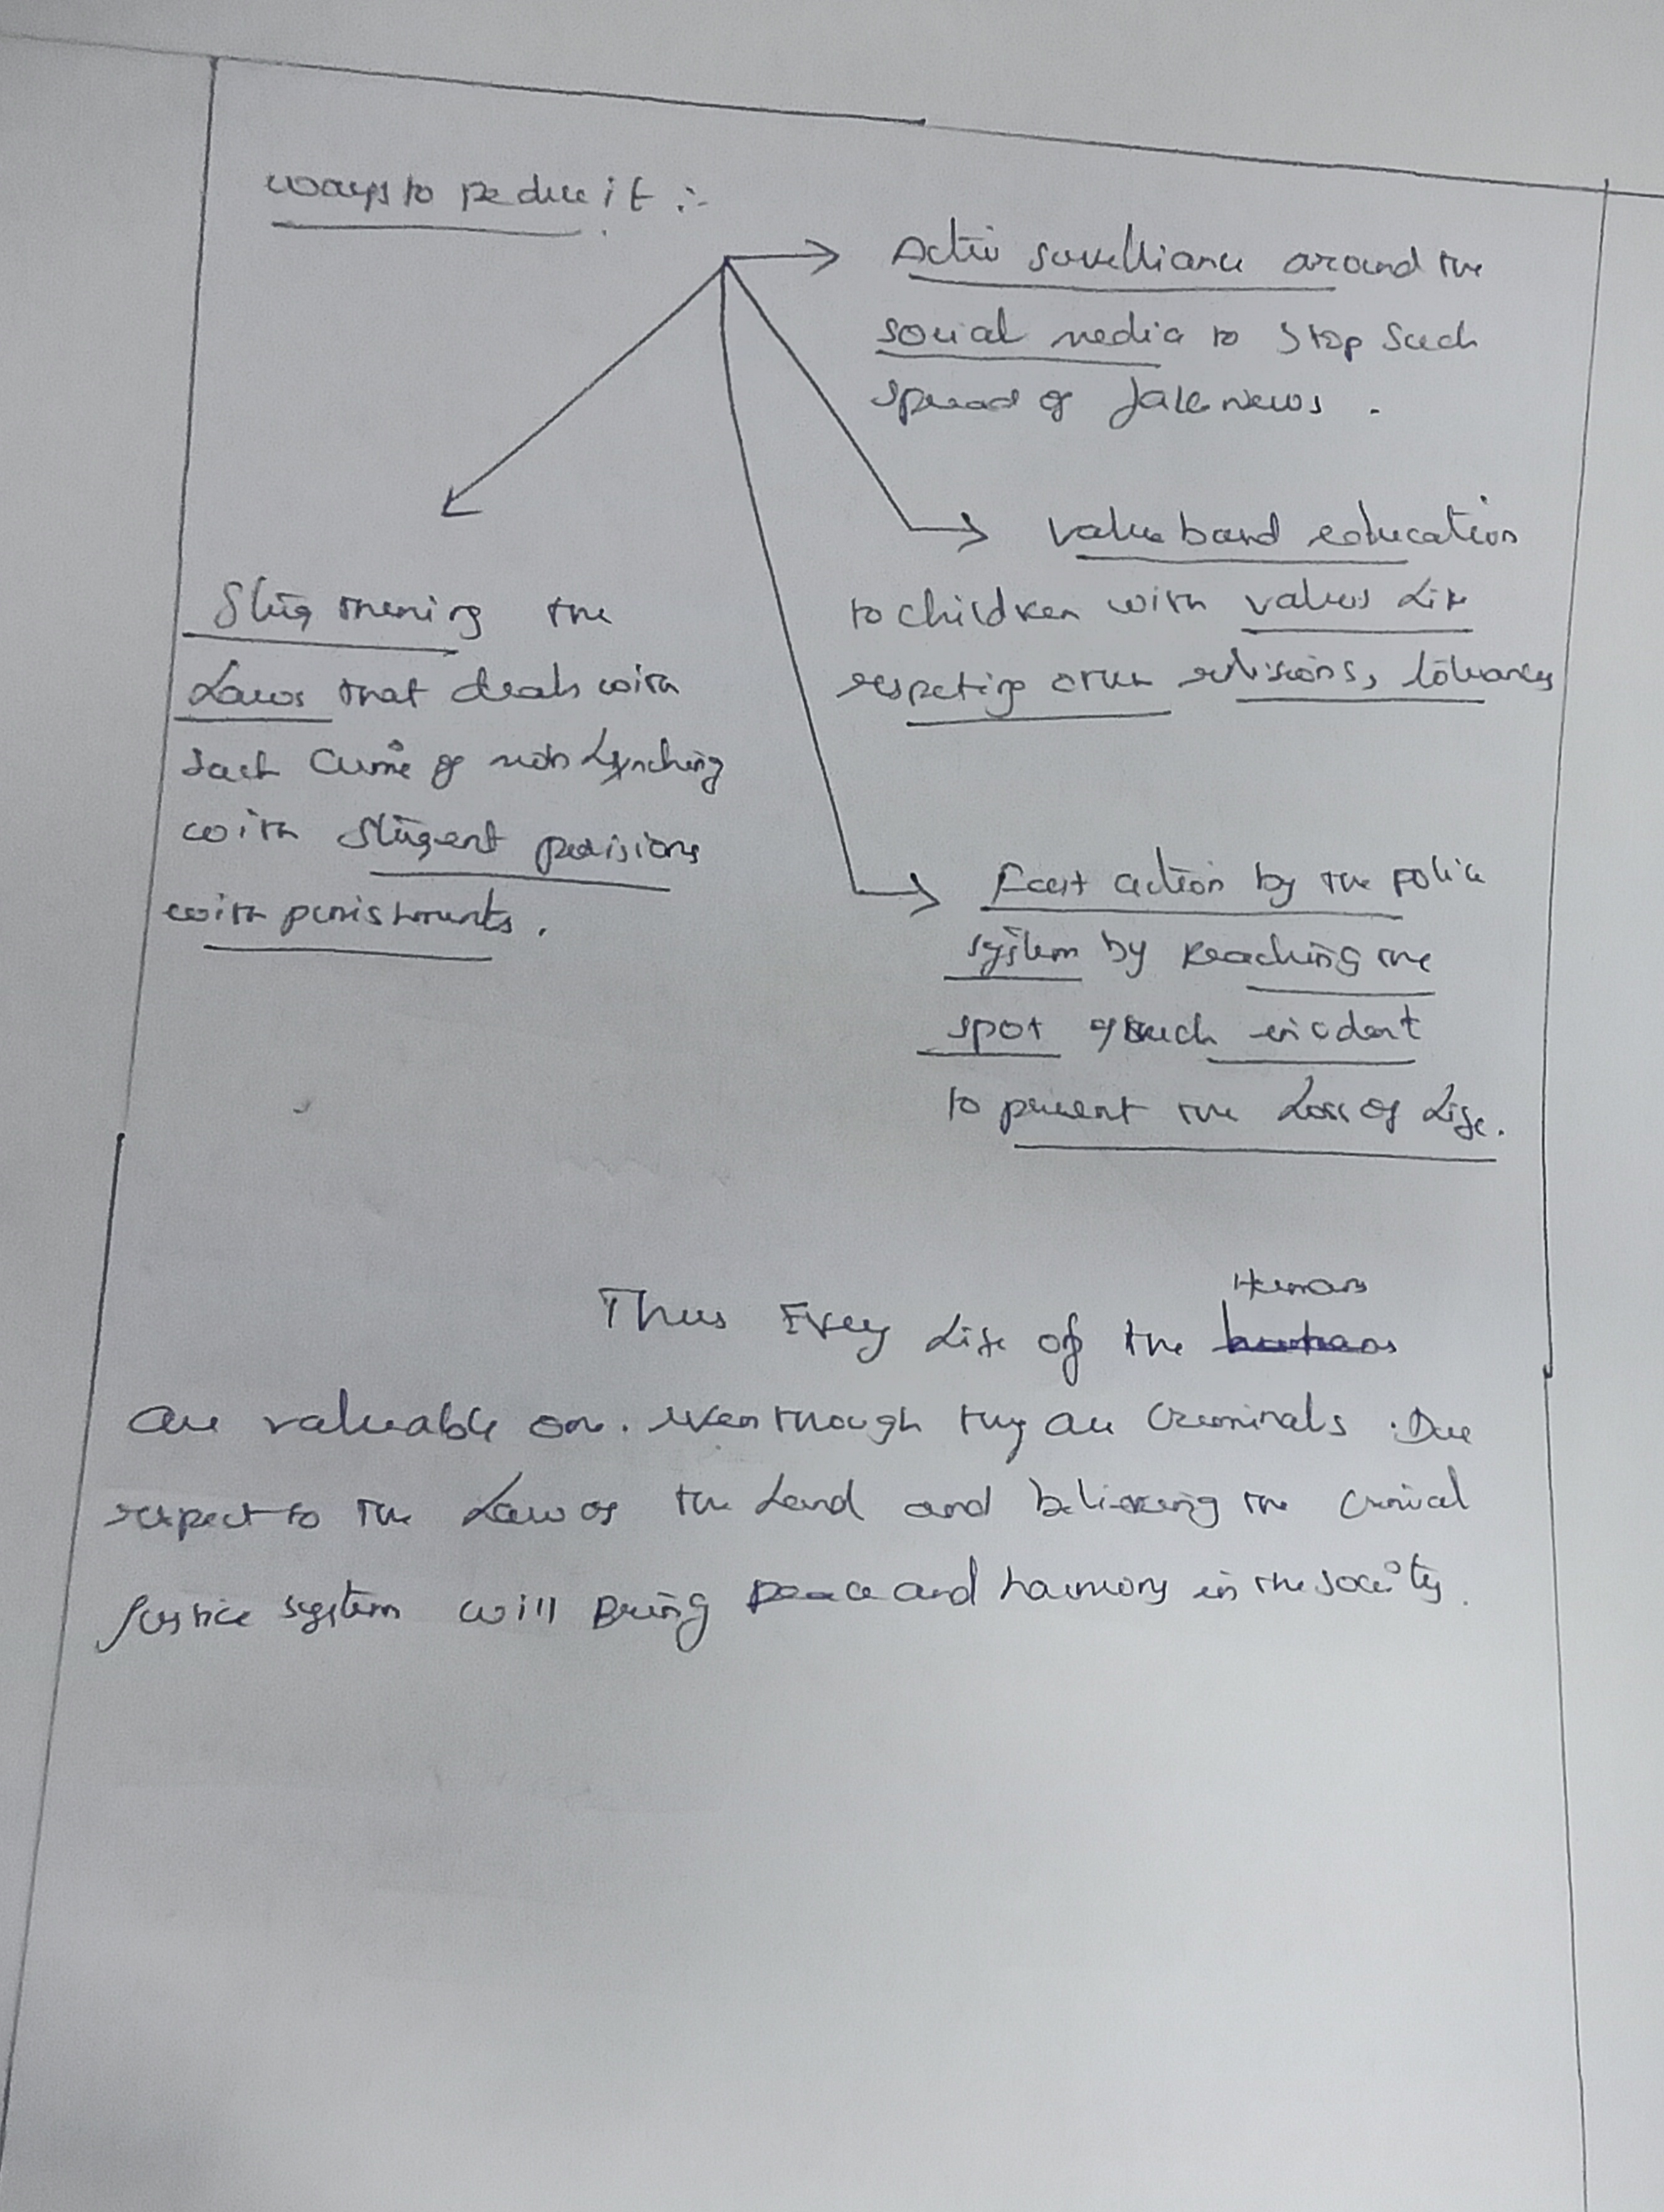 ways to reduce it :-
Active survelliance around the
social media to stop such
spread of fake news .
value based education
to children with values like
respecting other religions, tolerances
Strengthening the
Laws that deals with
such crime of mob Lynching
with stringent provisions
with punishments .
Fast action by the police
system by reaching the
spot of such incident
to prevent the Loss of Life.
Humans
Thus Every Life of the humans
are valuable one. Even though they are Criminals . Due
respect to the Law of the Land and believing the criminal
Justice system will Bring peace and harmony in the society .